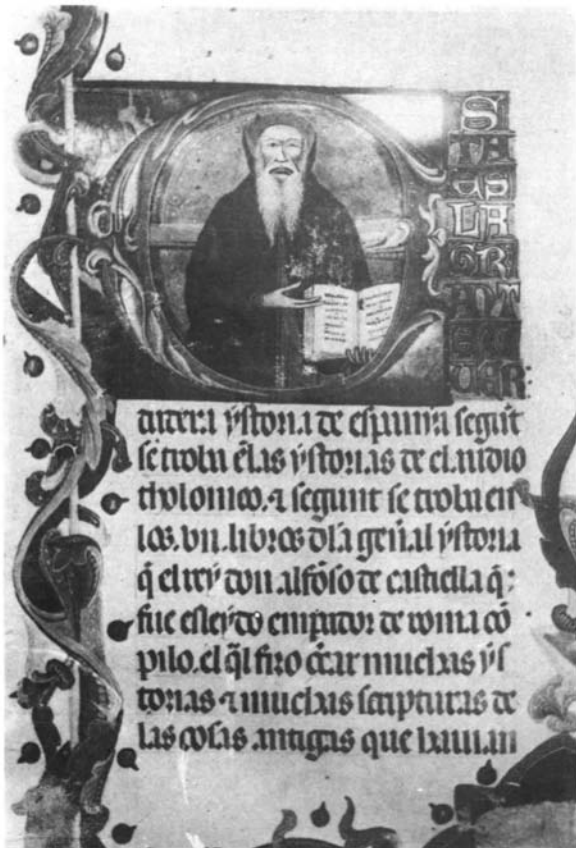 E
S
TA
ES
LA
GR
ANT
UER:
dadera ystoria de espanya segũt
se troba ẽlas ystorias de claudio
tholomeo. ⁊ segunt se troba en
los .vii. libros dla geñal ystoria
q̃ el rey don alfõso de castiella q̃
fue esleydo emp̃ador de roma cõ
pilo. el q̃l fizo çercar muchas ys
torias ⁊ muchas scripturas de
las cosas antigas que hauian